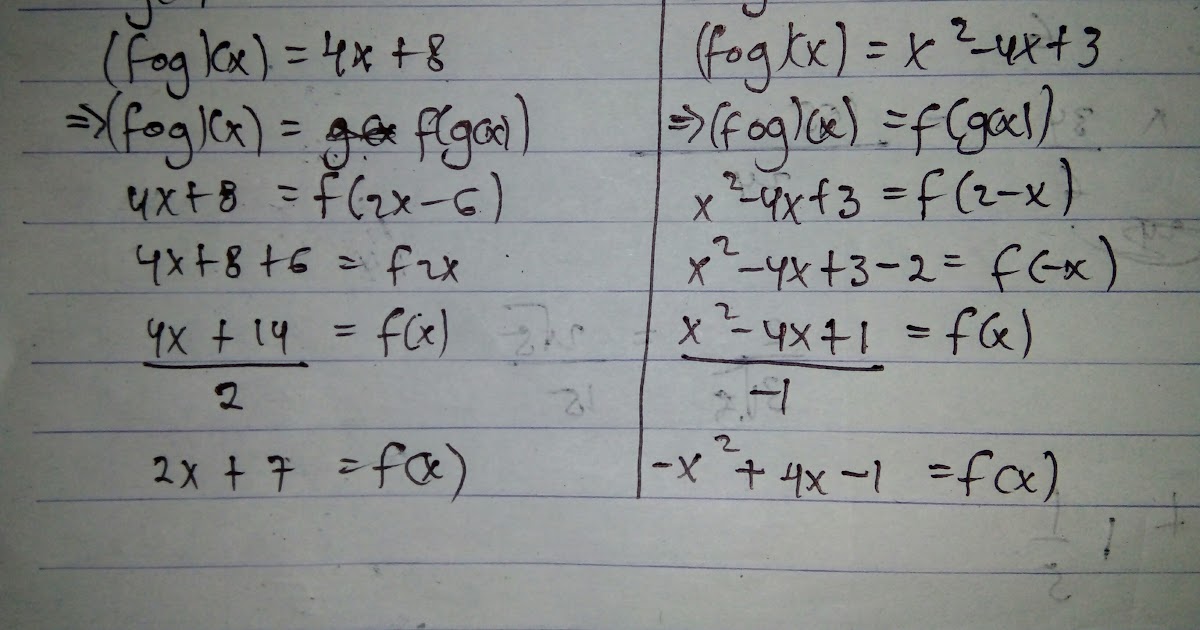 (fog)(x) = 4x + 8
⇒ (fog)(x) = f(g(x))
4x + 8 = f(2x - 6)
4x + 8 + 6 = f2x
4x + 14 / 2 = f(x)
2x + 7 = f(x)
(fog)(x) = x² - 4x + 3
⇒ (fog)(x) = f(g(x))
x² - 4x + 3 = f(2 - x)
x² - 4x + 3 - 2 = f(-x)
x² - 4x + 1 / -1 = f(x)
-x² + 4x - 1 = f(x)